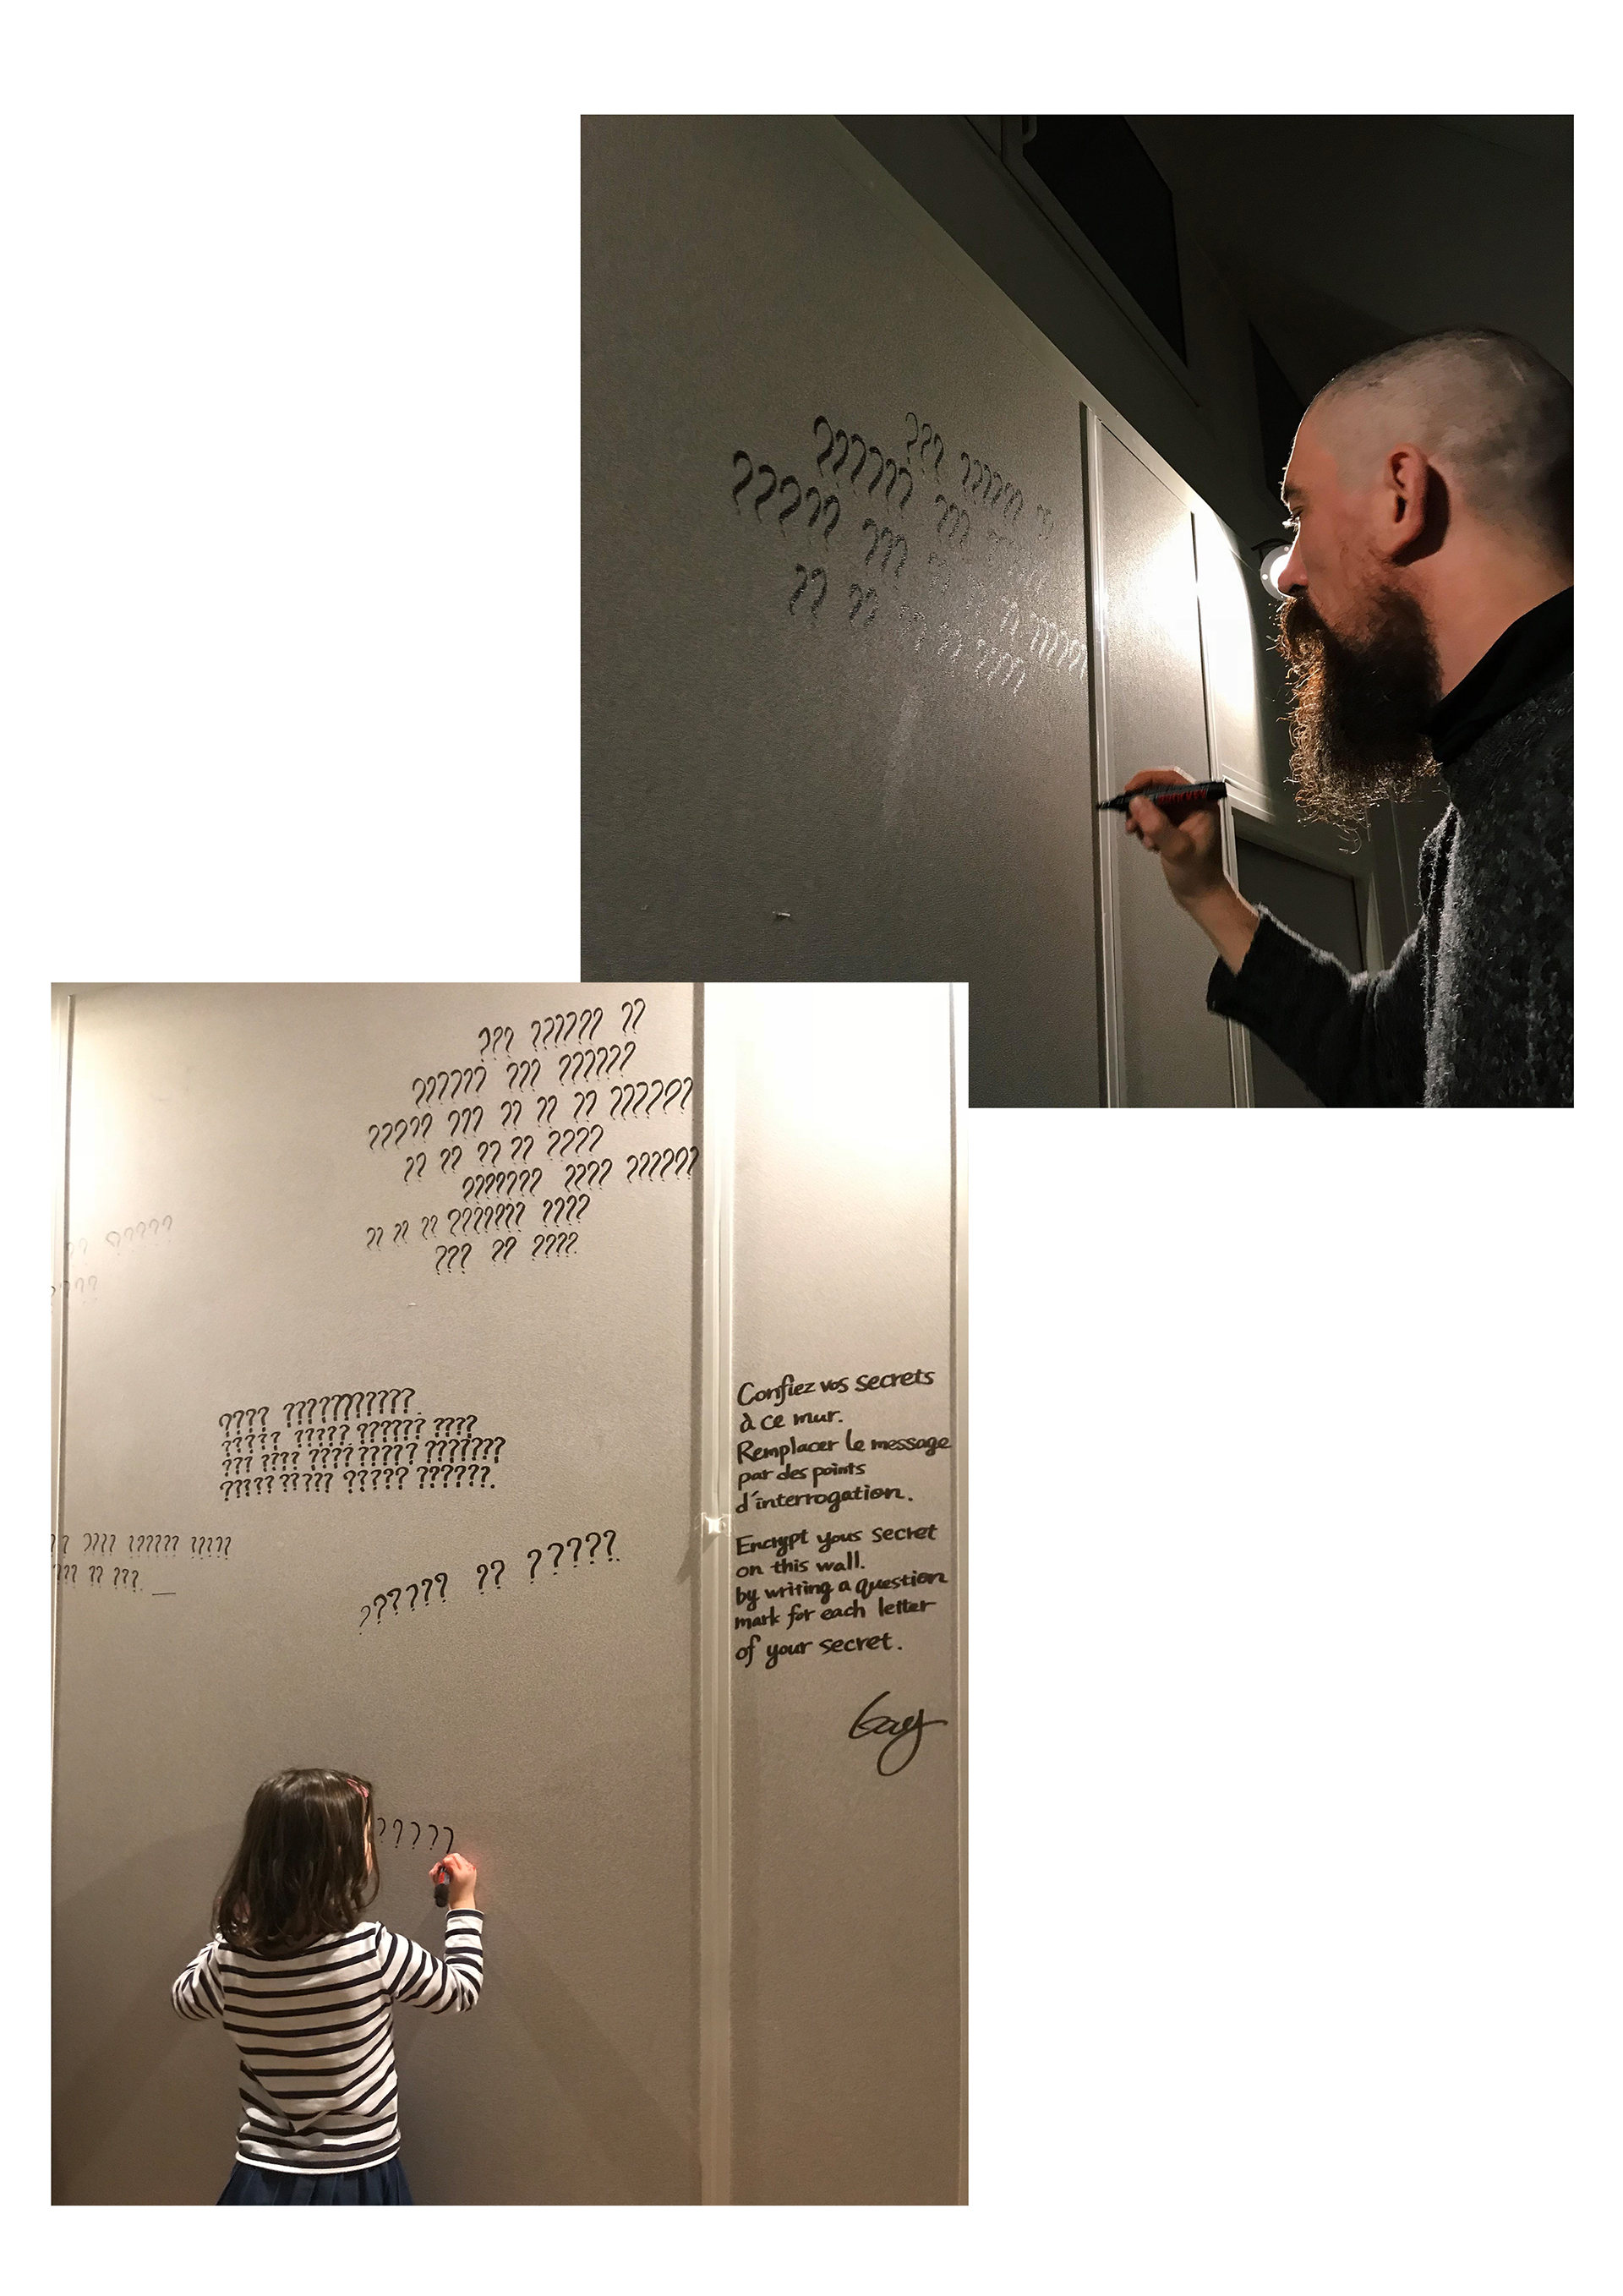 ??? ?????? ??
?????? ??? ??????
????? ??? ?? ?? ?? ??????
?? ?? ?? ?? ????
??????? ???? ??????
?? ?? ?? ??????? ????
??? ?? ????
???? ???????????.
????? ????? ?????? ????
??? ???? ???? ????? ???????
????? ????? ????? ??????.
?? ???? ?????? ?????
??? ?? ???.
????? ?? ?????
?????
Confiez vos secrets
à ce mur.
Remplacer le message
par des points
d'interrogation.
Encrypt yous secret
on this wall.
by writing a question
mark for each letter
of your secret.